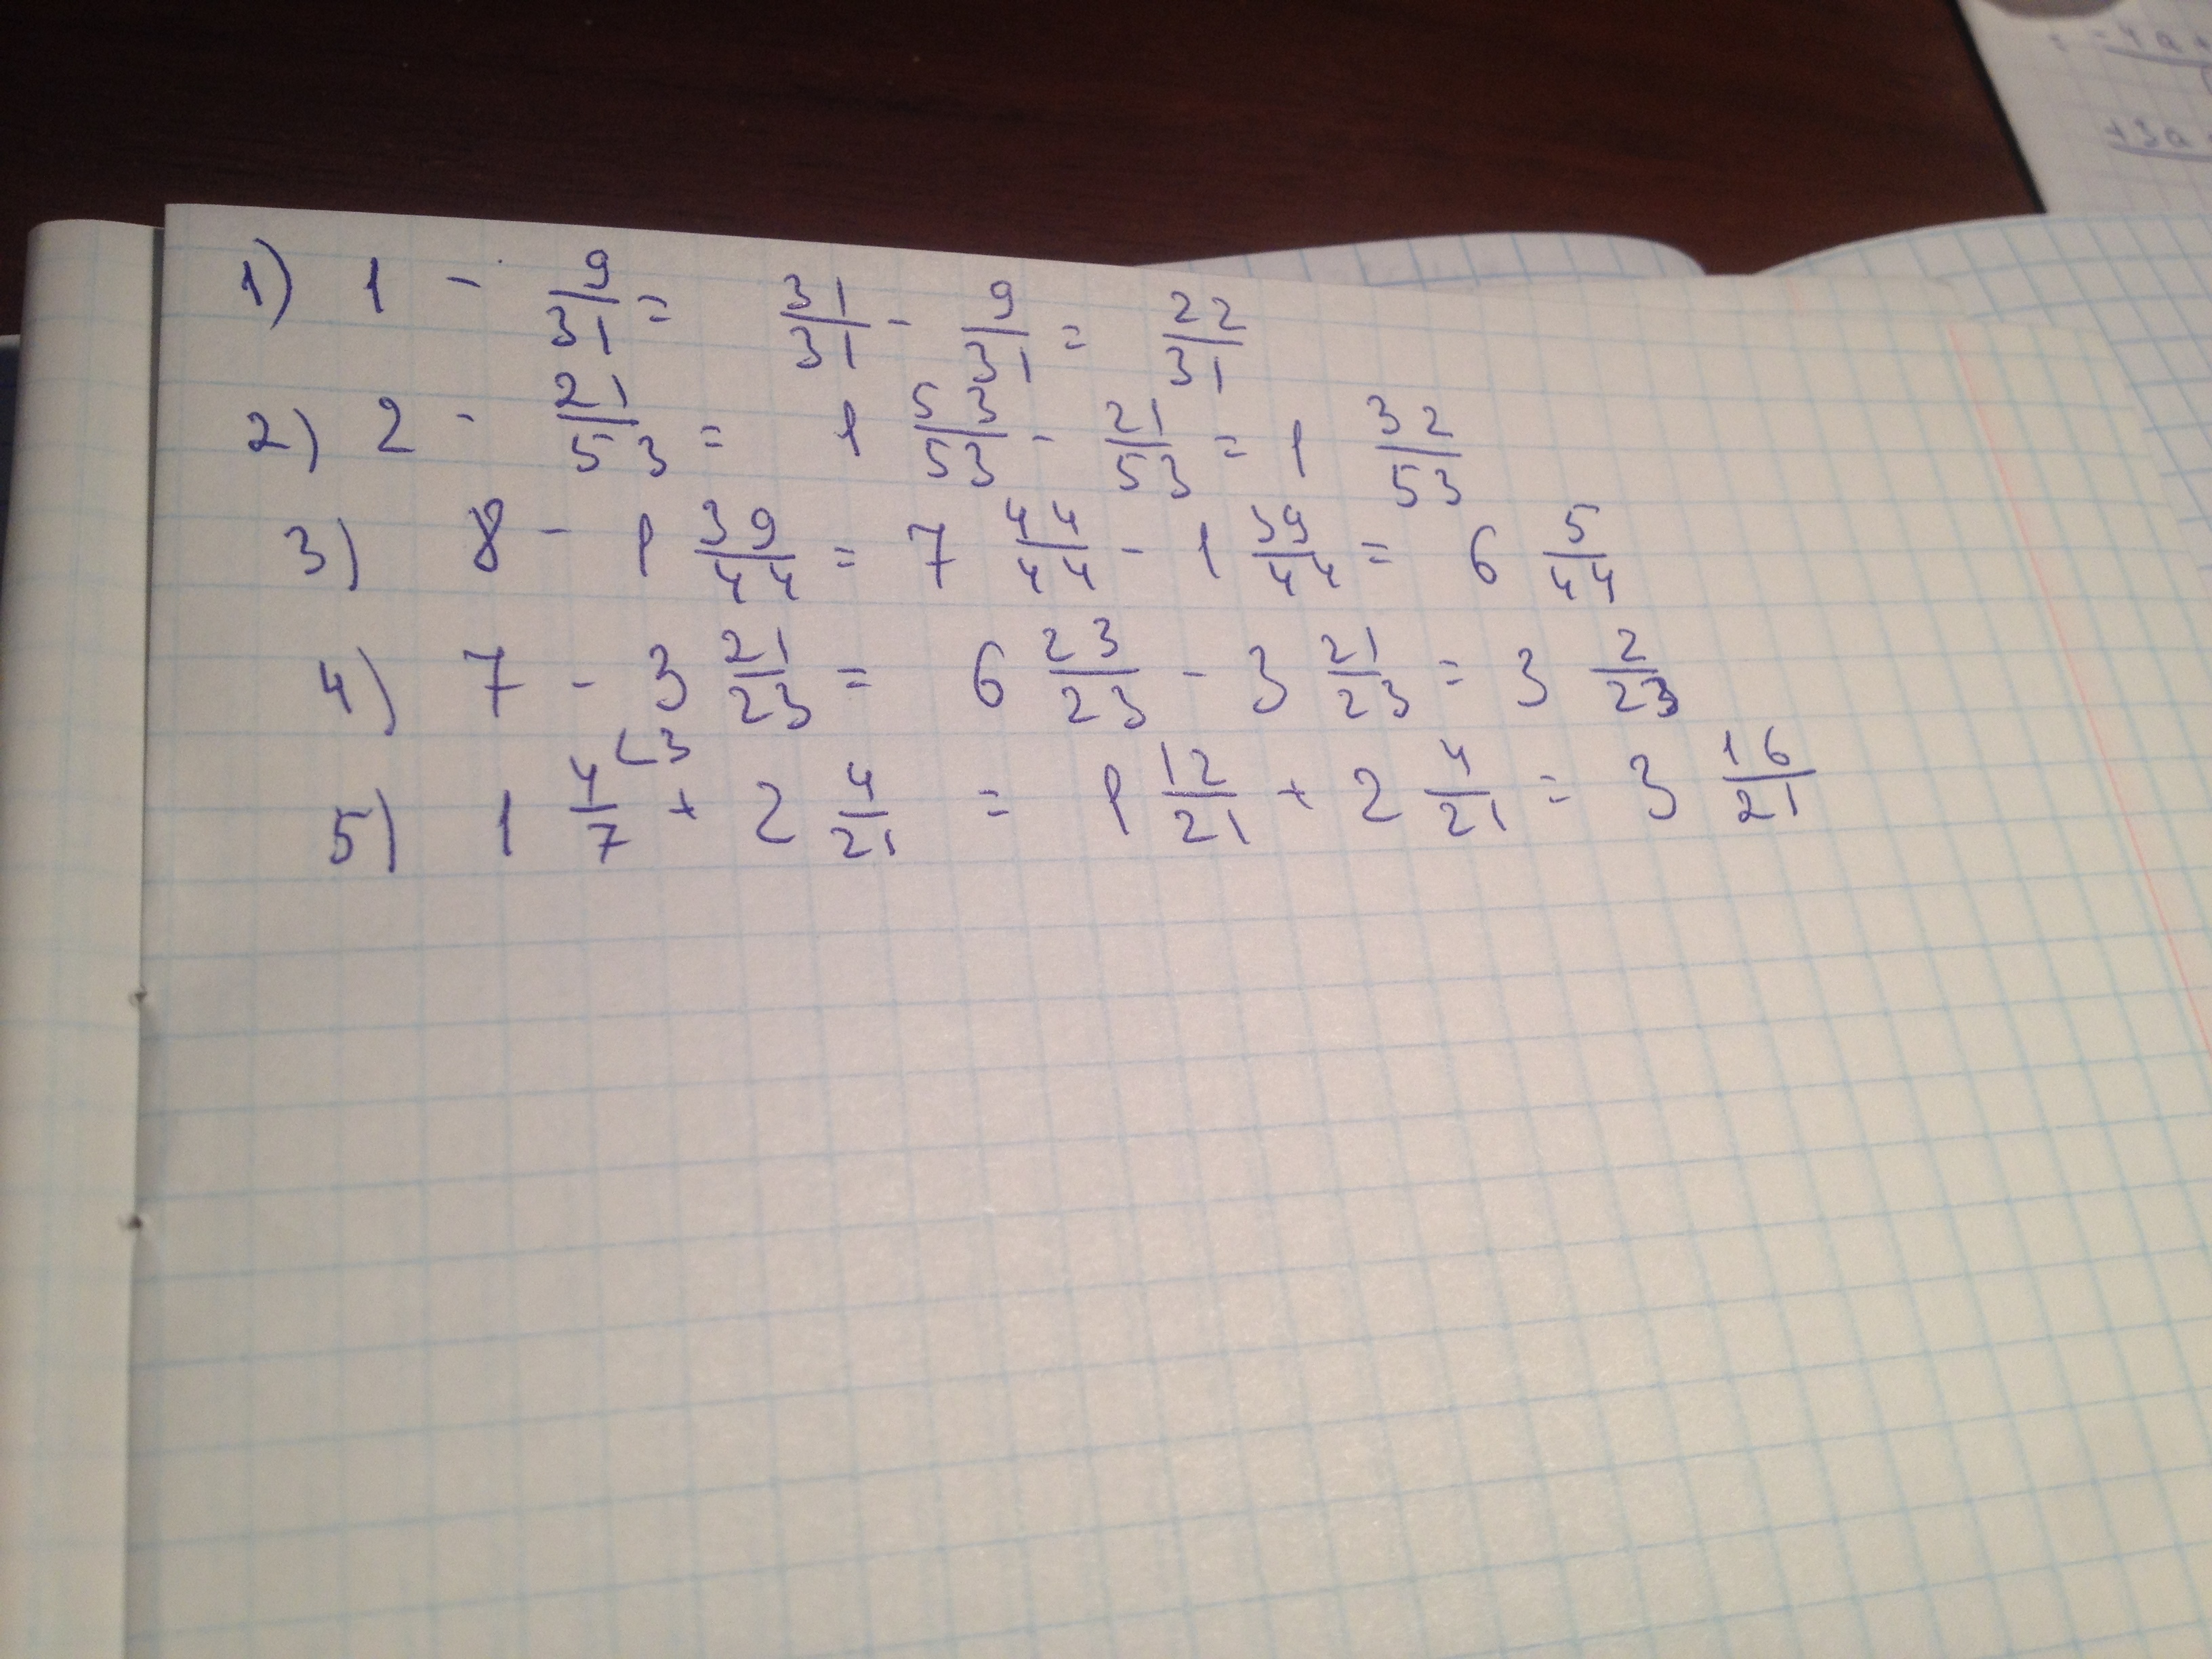 1) 1 - 9/31 = 31/31 - 9/31 = 22/31
2) 2 - 21/53 = 1 53/53 - 21/53 = 1 32/53
3) 8 - 1 39/44 = 7 44/44 - 1 39/44 = 6 5/44
4) 7 - 3 21/23 = 6 23/23 - 3 21/23 = 3 2/23
5) 1 4/7 (3 + 2 4/21 = 1 12/21 + 2 4/21 = 3 16/21
-4a
+3a